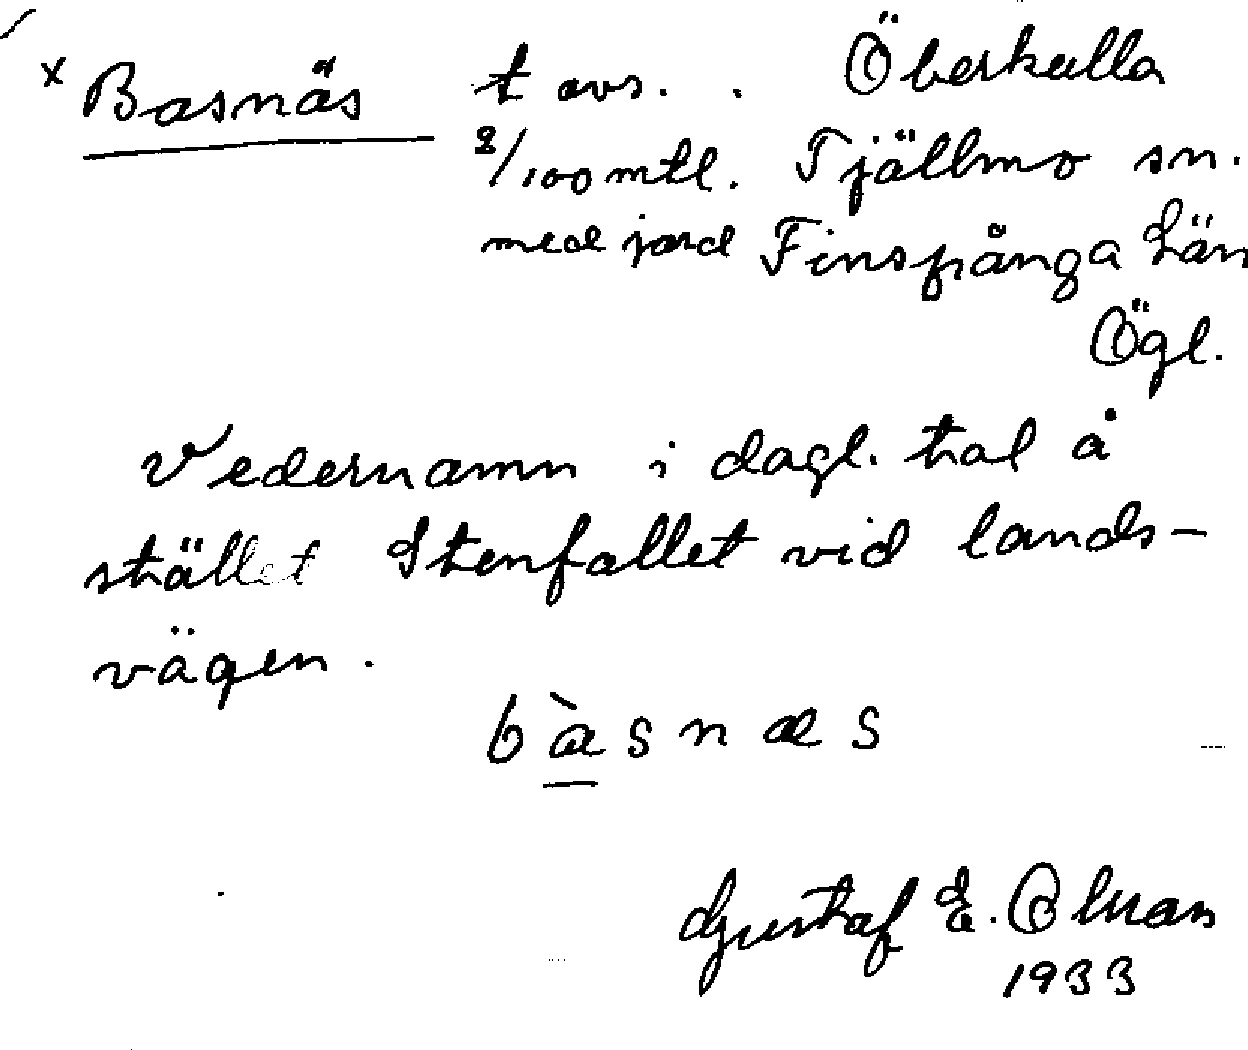 x Basnäs t avs. . Öberkulla
2/100 mtl. Tjällmo sn.
med jord Finspånga Län
Ögl.
Vedernamn i dagl. tal å
stället Stenfallet vid lands-
vägen.
bàsnæs
Gustaf E. Olson
1933